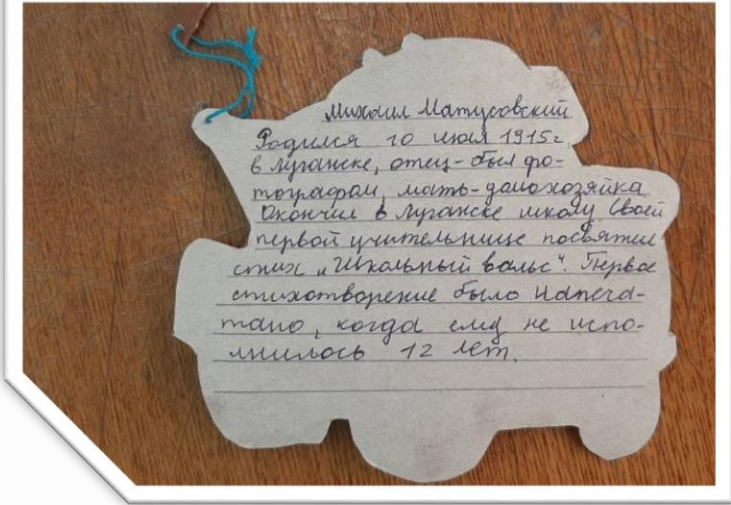 Михаил Матусовский
Родился 10 июля 1915г.
в Луганске, отец-был фо-
тографом, мать-домохозяйка
Окончил в Луганске школу Своей
первой учительнице посвятил
стих „Школьный вальс“. Первое
стихотворение было напеча-
тано, когда ему не испо-
лнилось 12 лет.